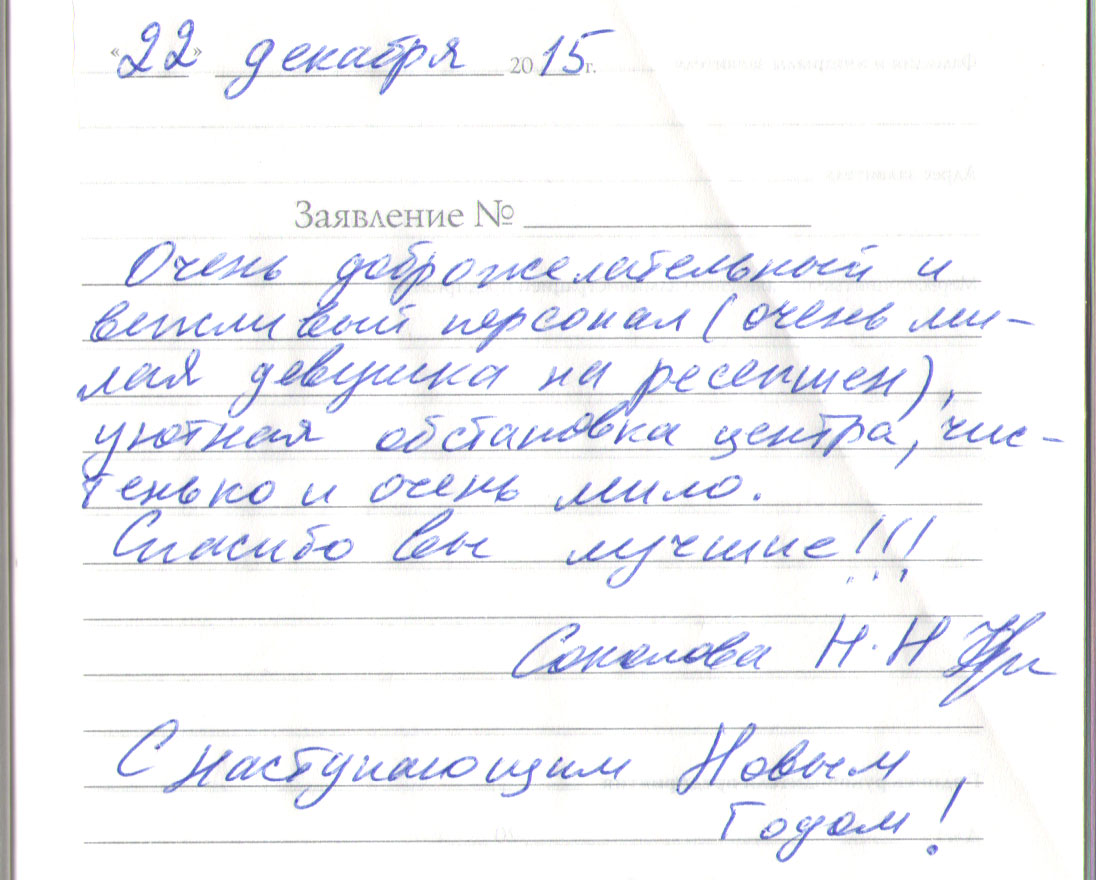 «22» декабря 2015г.
Заявление №
Очень доброжелательный и
вежливый персонал (очень ми-
лая девушка на ресепшен),
уютная обстановка центра, чис-
тенько и очень мило.
Спасибо вы лучшие!!!
Соколова Н.Н
С наступающим Новым
годом!